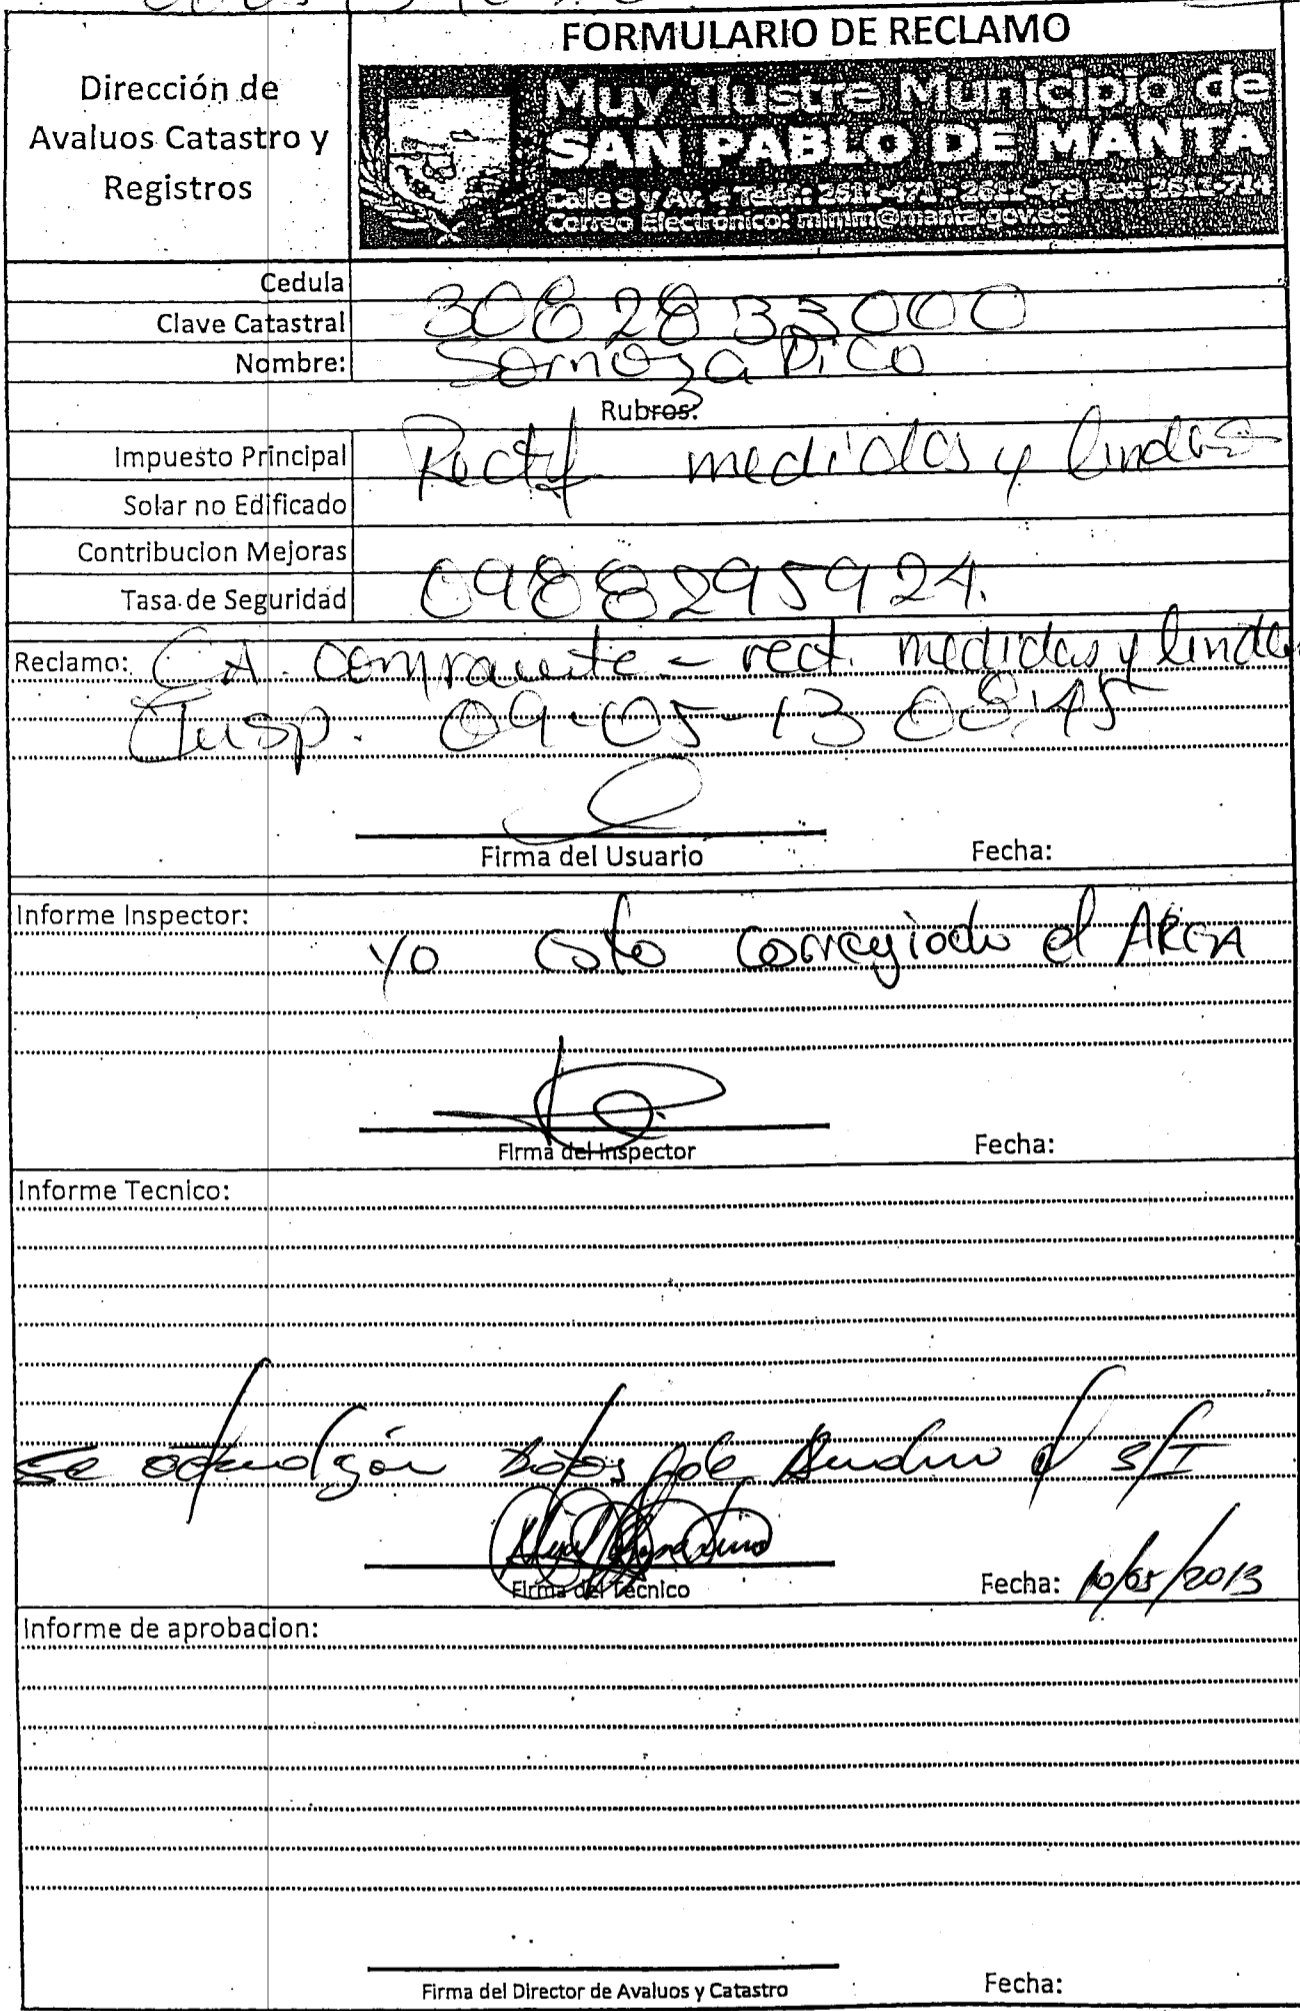 FORMULARIO DE RECLAMO
Dirección de
Avaluos Catastro y
Registros
Muy Ilustre Municipio de
SAN PABLO DE MANTA
Calle 9 y Av. 4 Telf.: 2611-471 - 2611-479 Fax: 2611-714
Correo Electrónico: mimm@manta.gov.ec
Cedula
Clave Catastral 3082833000
Nombre: Somoza Pico
Rubros:
Impuesto Principal Rectf medidas y linderos
Solar no Edificado
Contribucion Mejoras
Tasa de Seguridad 0988295924.
Reclamo: CA. compraventa - rect. medidas y linde
Insp. 09-05-13 08:45
Firma del Usuario Fecha:
Informe Inspector:
yo esto corregiodo el AREA
Firma del Inspector Fecha:
Informe Tecnico:
Se
Firma del Tecnico Fecha: 10/05/2013
Informe de aprobacion:
Firma del Director de Avaluos y Catastro Fecha: